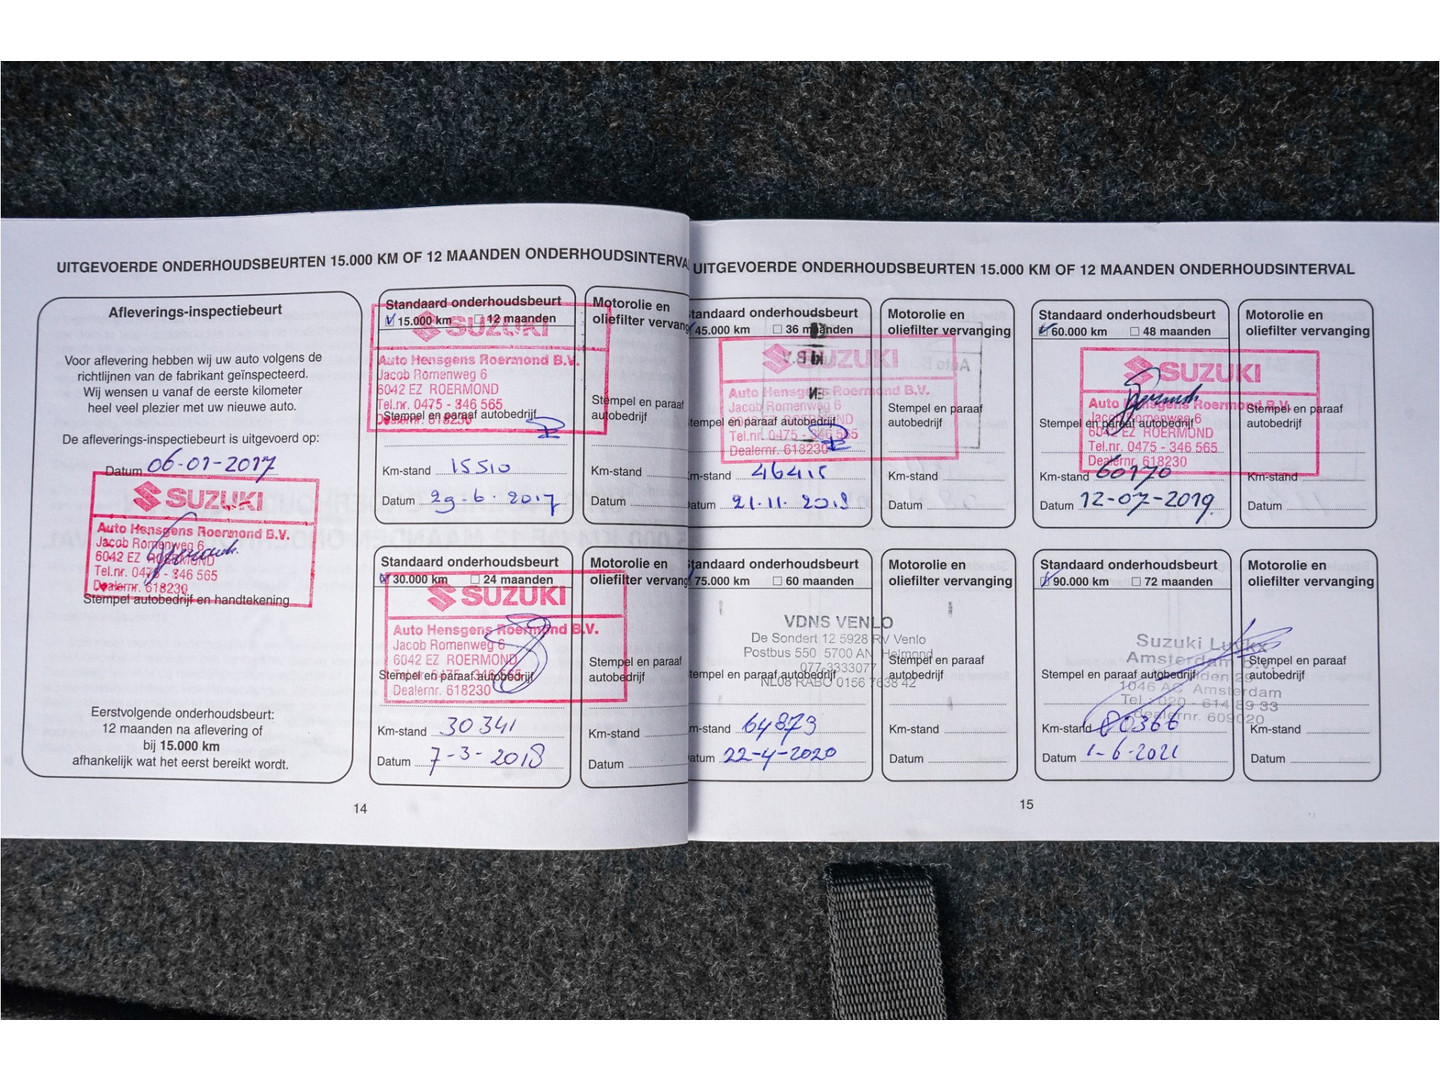 UITGEVOERDE ONDERHOUDSBEURTEN 15.000 KM OF 12 MAANDEN ONDERHOUDSINTERVA
Afleverings-inspectiebeurt
Voor aflevering hebben wij uw auto volgens de
richtlijnen van de fabrikant geïnspecteerd.
Wij wensen u vanaf de eerste kilometer
heel veel plezier met uw nieuwe auto.
De afleverings-inspectiebeurt is uitgevoerd op:
Datum 06-01-2017
SUZUKI
Auto Hensgens Roermond B.V.
Jacob Romenweg 6
6042 EZ ROERMOND
Tel.nr. 0475 - 346 565
Dealernr. 618230
Stempel autobedrijf en handtekening
Eerstvolgende onderhoudsbeurt:
12 maanden na aflevering of
bij 15.000 km
afhankelijk wat het eerst bereikt wordt.
Standaard onderhoudsbeurt
15.000 km 12 maanden
SUZUKI
Auto Hensgens Roermond B.V.
Jacob Romenweg 6
6042 EZ ROERMOND
Tel.nr. 0475 - 346 565
Dealernr. 618230
Stempel en paraaf autobedrijf
Km-stand 15510
Datum 29-6-2017
Motorolie en
oliefilter vervang
Stempel en paraaf
autobedrijf
Km-stand
Datum
Standaard onderhoudsbeurt
30.000 km 24 maanden
SUZUKI
Auto Hensgens Roermond B.V.
Jacob Romenweg 6
6042 EZ ROERMOND
Stempel en paraaf autobedrijf
Dealernr. 618230
Km-stand 30341
Datum 7-3-2018
Motorolie en
oliefilter vervang
Stempel en paraaf
autobedrijf
Km-stand
Datum
14
UITGEVOERDE ONDERHOUDSBEURTEN 15.000 KM OF 12 MAANDEN ONDERHOUDSINTERVAL
standaard onderhoudsbeurt
45.000 km 36 maanden
SUZUKI
Auto Hensgens Roermond B.V.
Jacob Romenweg 6
tempel en paraaf autobedrijf
Tel.nr. 0475 - 346 565
Dealernr. 618230
m-stand 46415
atum 21-11-2018
Motorolie en
oliefilter vervanging
Stempel en paraaf
autobedrijf
Km-stand
Datum
Standaard onderhoudsbeurt
60.000 km 48 maanden
SUZUKI
Auto Hensgens Roermond B.V.
Jacob Romenweg 6
Stempel en paraaf autobedrijf
Tel.nr. 0475 - 346 565
Dealernr. 618230
Km-stand 60170
Datum 12-07-2019
Motorolie en
oliefilter vervanging
Stempel en paraaf
autobedrijf
Km-stand
Datum
Standaard onderhoudsbeurt
75.000 km 60 maanden
VDNS VENLO
De Sondert 12 5928 RV Venlo
Postbus 550 5700 AN Helmond
077-3333077
tempel en paraaf autobedrijf
NL08 RABO 0156 7638 42
m-stand 64879
atum 22-4-2020
Motorolie en
oliefilter vervanging
Stempel en paraaf
autobedrijf
Km-stand
Datum
Standaard onderhoudsbeurt
90.000 km 72 maanden
Suzuki
Amsterdam B.V.
Stempel en paraaf autobedrijf
1046 AC Amsterdam
Tel. 020 - 614 89 33
Dealernr. 609020
Km-stand 80366
Datum 1-6-2021
Motorolie en
oliefilter vervanging
Stempel en paraaf
autobedrijf
Km-stand
Datum
15